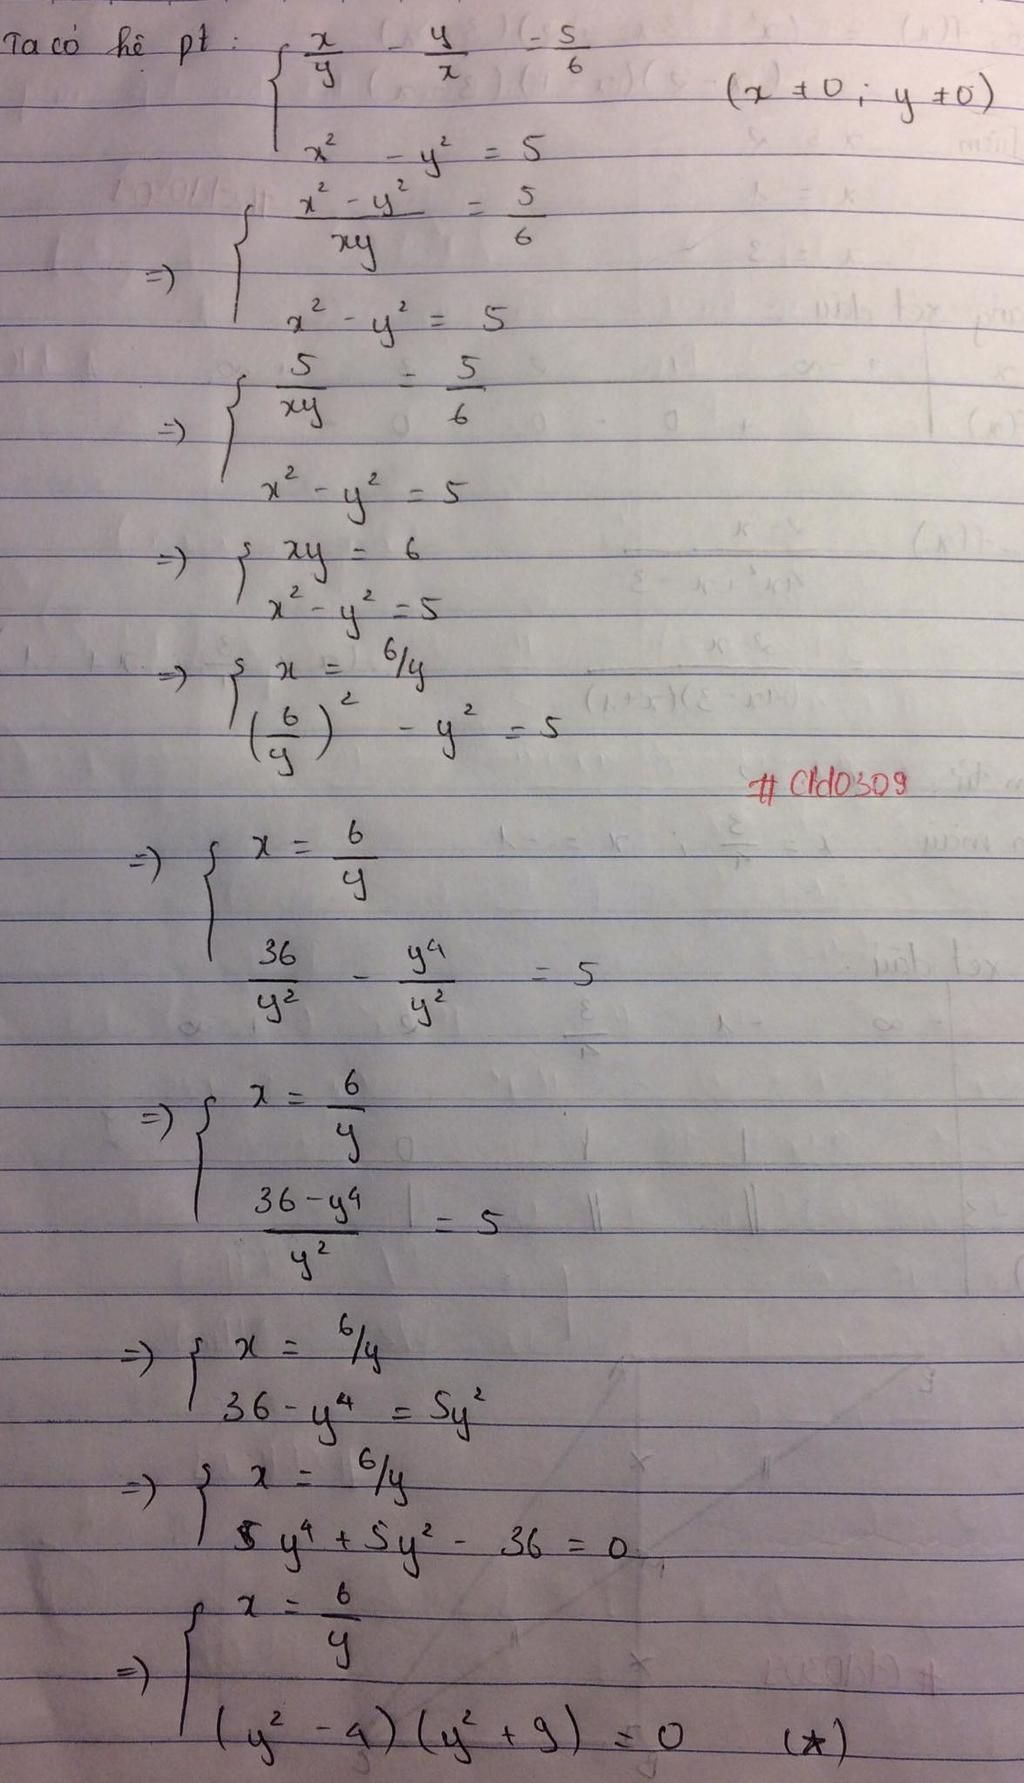 Ta có hệ pt : { x/y - y/x = 5/6
(x ≠ 0 ; y ≠ 0)
x² - y² = 5
=> { (x² - y²)/xy = 5/6
x² - y² = 5
=> { 5/xy = 5/6
x² - y² = 5
=> { xy = 6
x² - y² = 5
=> { x = 6/y
(6/y)² - y² = 5
# Ctd0309
=> { x = 6/y
36/y² - y⁴/y² = 5
=> { x = 6/y
(36 - y⁴)/y² = 5
=> { x = 6/y
36 - y⁴ = 5y²
=> { x = 6/y
y⁴ + 5y² - 36 = 0
=> { x = 6/y
(y² - 4)(y² + 9) = 0 (*)